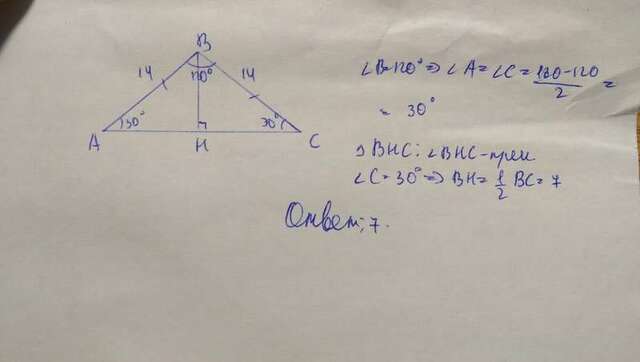 B
14 120° 14
30° 30°
A H C
∠B=120° ⇒ ∠A = ∠C = (180-120)/2 =
= 30°
Δ BHC: ∠BHC-прям
∠C = 30° ⇒ BH = 1/2 BC = 7
Ответ: 7.